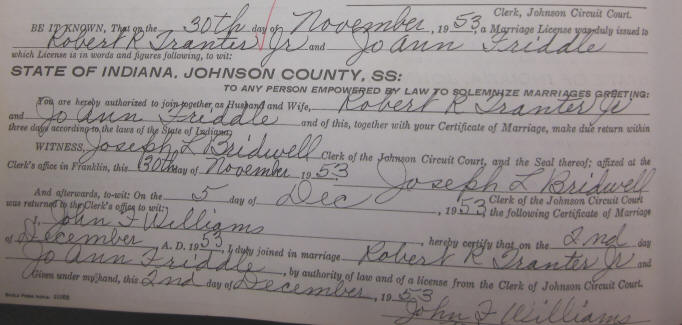 Clerk, Johnson Circuit Court.
BE IT KNOWN, That on the 30th day of November, 1953, a Marriage License was duly issued to
Robert R Tranter Jr and Jo Ann Friddle
which License is in words and figures following, to wit:
STATE OF INDIANA, JOHNSON COUNTY, SS:
TO ANY PERSON EMPOWERED BY LAW TO SOLEMNIZE MARRIAGES GREETING:
You are hereby authorized to join together as Husband and Wife, Robert R Tranter Jr
and Jo Ann Friddle and of this, together with your Certificate of Marriage, make due return within
three days according to the laws of the State of Indiana.
WITNESS, Joseph L Bridwell Clerk of the Johnson Circuit Court, and the Seal thereof; affixed at the
Clerk's office in Franklin, this 30th day of November 1953
Joseph L Bridwell
Clerk of the Johnson Circuit Court
And afterwards, to-wit: On the 5 day of Dec, 1953, the following Certificate of Marriage
was returned to the Clerk's office to wit:
I, John F Williams, hereby certify that on the 2nd day
of December A. D. 1953, I duly joined in marriage Robert R Tranter Jr and
Jo Ann Friddle, by authority of law and of a license from the Clerk of Johnson Circuit Court.
Given under my hand, this 2nd day of December, 1953
John F Williams